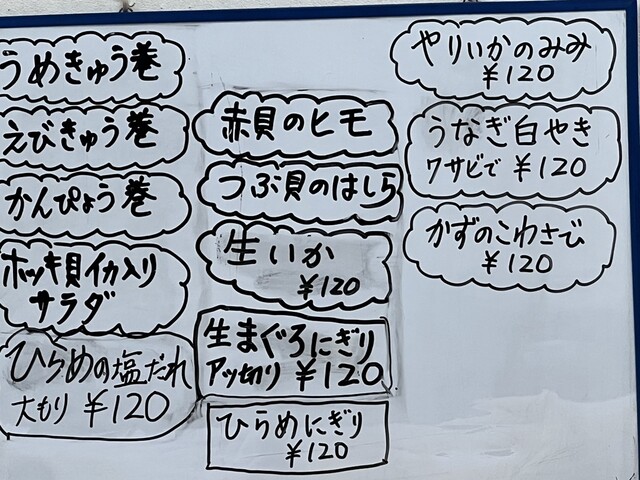 うめきゅう巻
えびきゅう巻
かんぴょう巻
ホッキ貝イカ入り
サラダ
ひらめの塩だれ
大もり ¥120
赤貝のヒモ
つぶ貝のはしら
生いか
¥120
生まぐろにぎり
アッ切り ¥120
ひらめにぎり
¥120
やりいかのみみ
¥120
うなぎ白やき
ワサビで ¥120
かずのこわさび
¥120